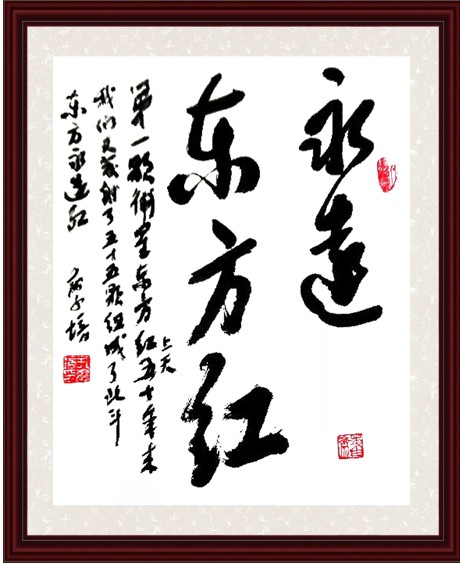 永遠
东方红
第一颗衛星东方红上天五十年来
我们又发射了五十五颗组成了北斗
东方永遠红